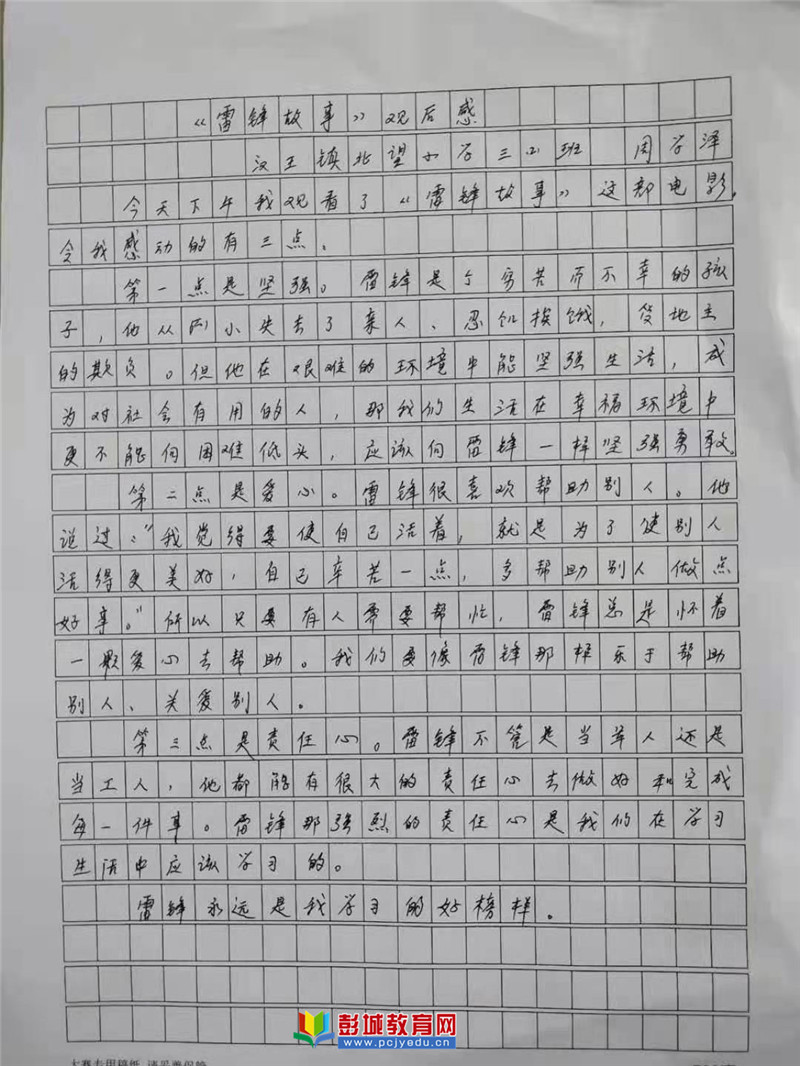 《雷锋故事》观后感
汉王镇北望小学三(2)班 周学泽
今天下午我观看了《雷锋故事》这部电影。
令我感动的有三点。
第一点是坚强。雷锋是个穷苦而不幸的孩
子,他从小失去了亲人、忍饥挨饿,受地主
的欺负。但他在艰难的环境中能坚强生活,成
为对社会有用的人,那我们生活在幸福环境中
更不能向困难低头,应该向雷锋一样坚强勇敢。
第二点是爱心。雷锋很喜欢帮助别人。他
说过:“我觉得要使自己活着,就是为了使别人
活得更美好,自己辛苦一点,多帮助别人做点
好事。”所以只要有人需要帮忙,雷锋总是怀着
一颗爱心去帮助。我们要像雷锋那样乐于帮助
别人、关爱别人。
第三点是责任心。雷锋不管是当军人还是
当工人,他都能有很大的责任心去做好和完成
每一件事。雷锋那强烈的责任心是我们在学习
生活中应该学习的。
雷锋永远是我学习的好榜样。
彭城教育网
www.pcjyedu.cn